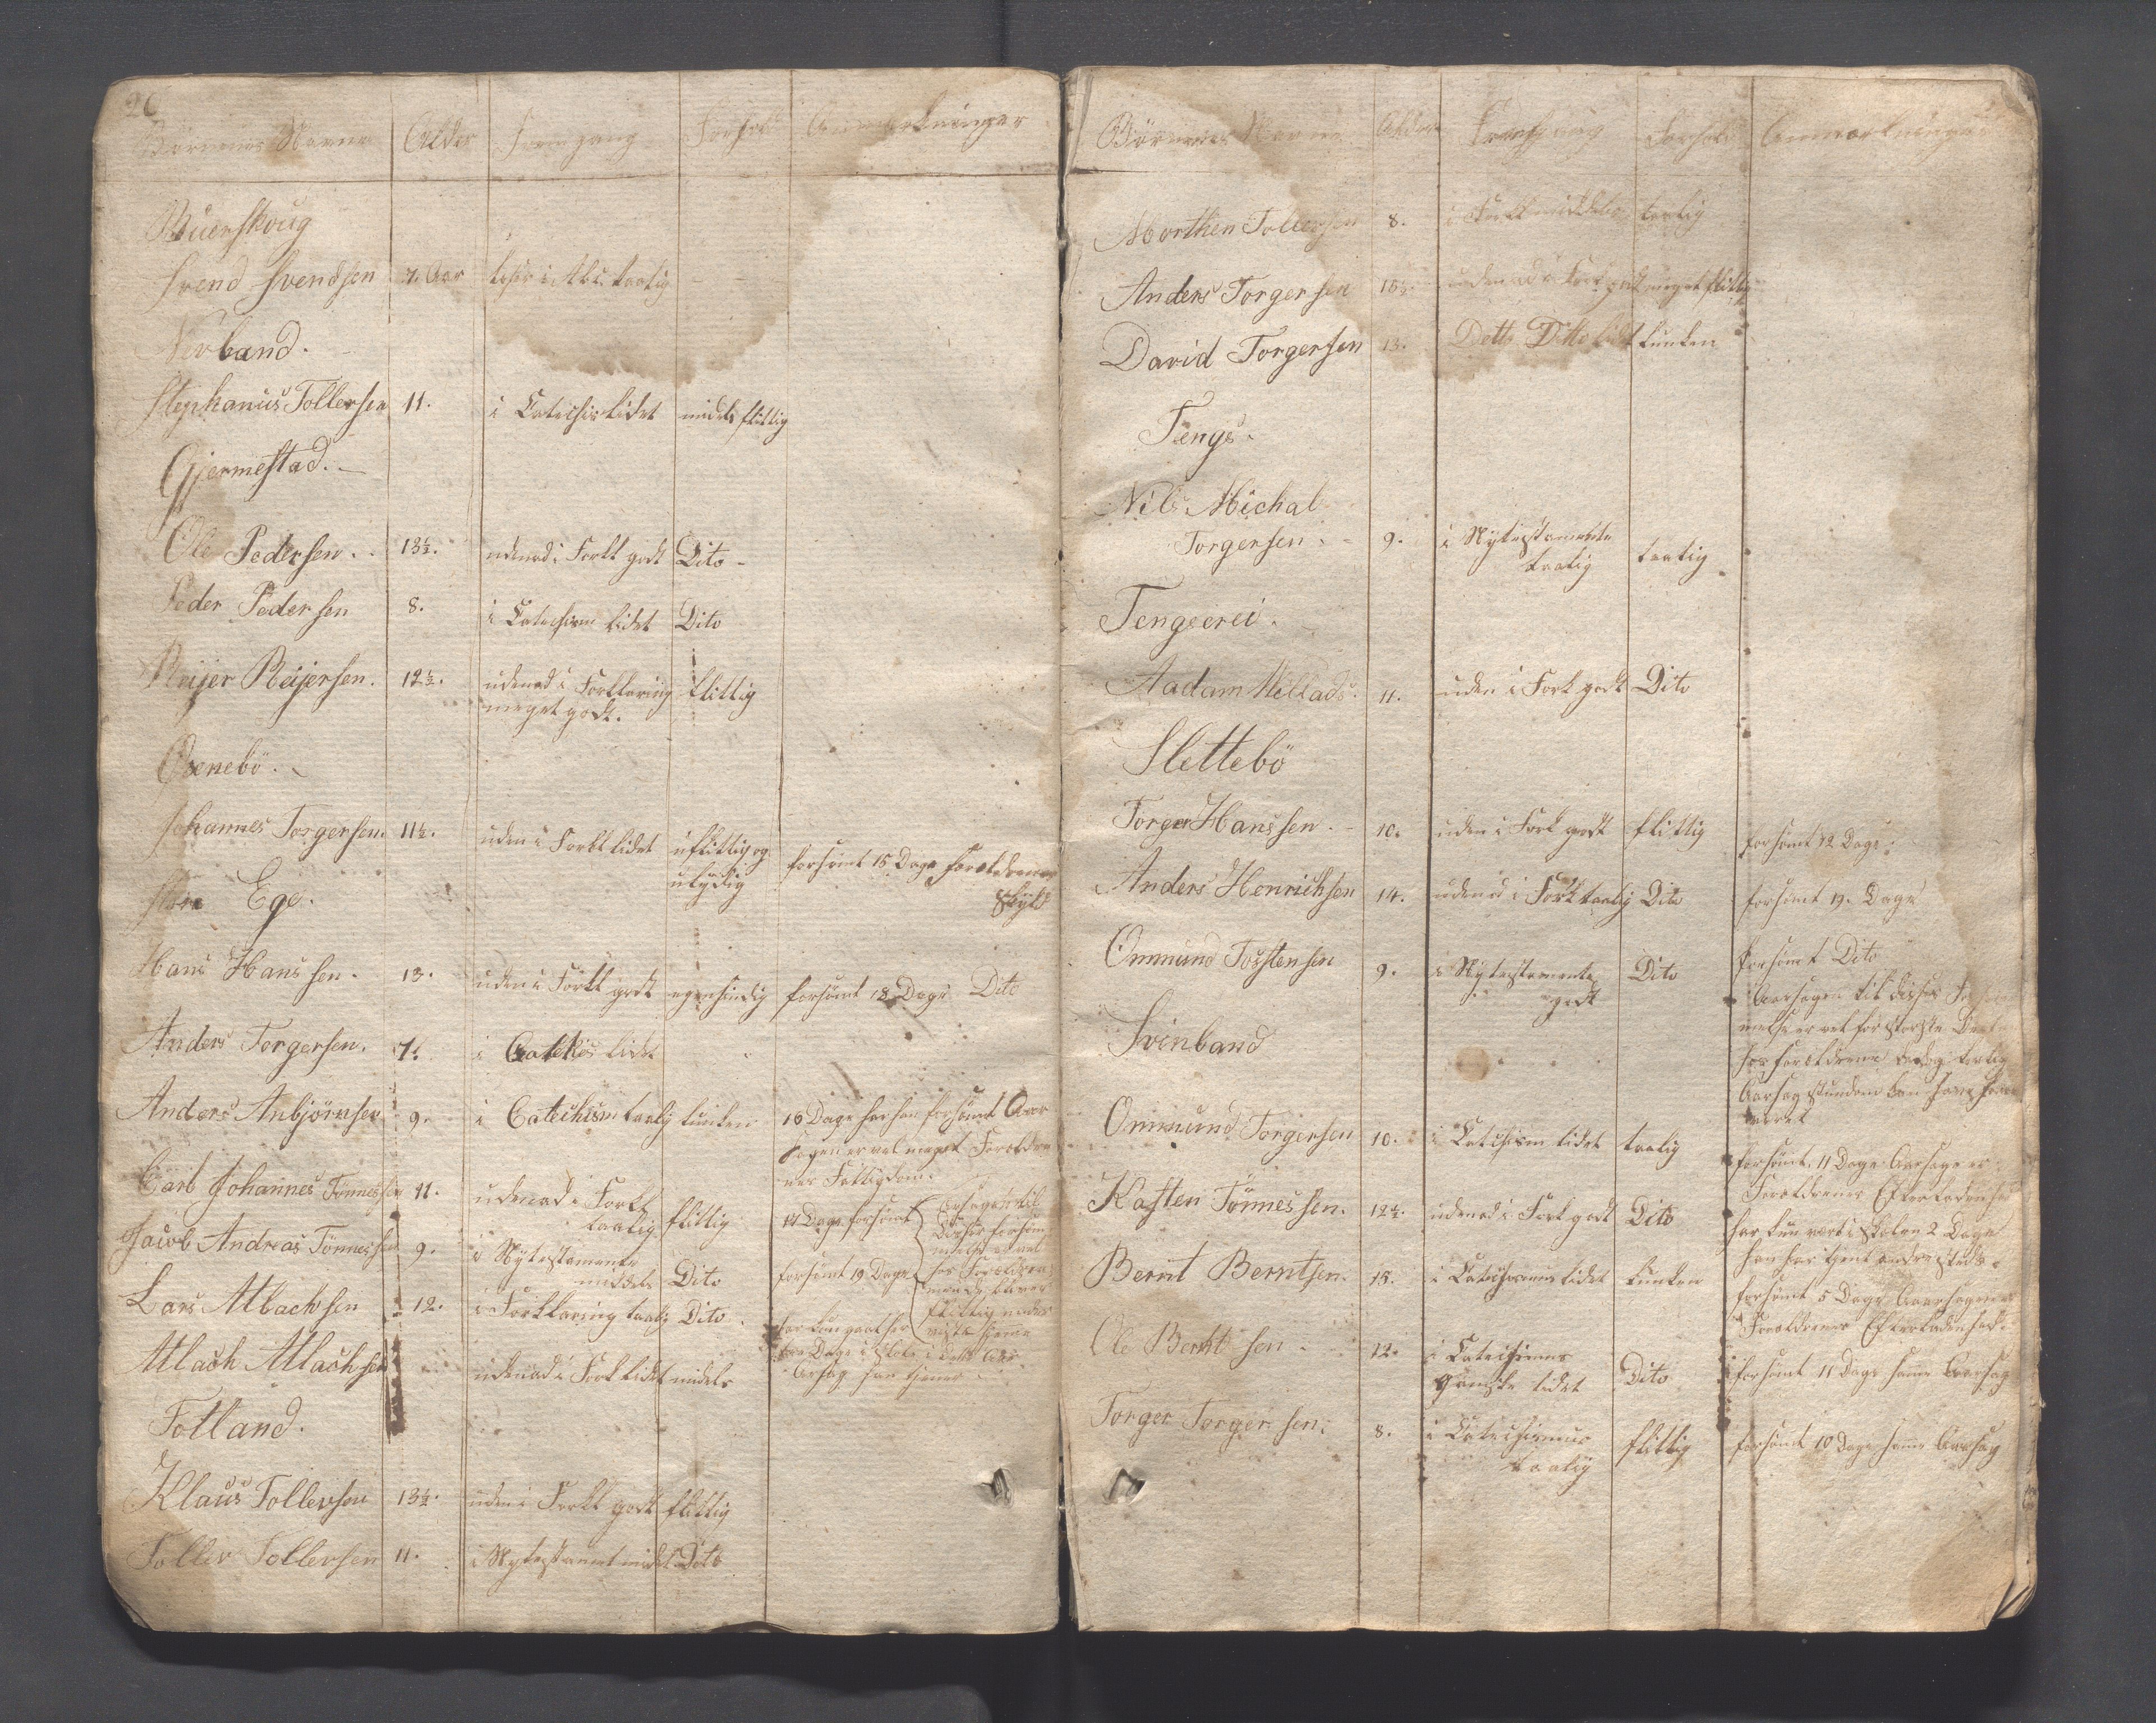 26
Börnenes Navne Alder Fremgang Forhold Anmærkninger
Buerskoug
Svend Svendsen 7. Aar læser i Abc taalig
Nevland.
Stephanus Tollevsen 11. i Catechis lidet midels flittig
Gjermestad.
Ole Pedersen. 13½. udenad i Forkl godt Dito
Peder Pedersen 8. i Catechism lidet Dito
Reijer Reijersen. 12½. udenad i Forklaring flittig
meget godt.
Osenebö.
Johannes Torgersen. 11½. uden i Forkl lidet uflittig og forsömt 15 Dage Forældrenes
ulydig Skyld
store Ege.
Hans Hanssen. 13. uden i Forkl godt egensindig forsömt 18 Dage Dito
Anders Torgersen. 7. i Catekis lidet
Anders Anbjörnsen 9. i Catechism taalig tunken 16 Dage har han forsömt Aar
sagen er vel meget Forældre
nes Fattigdom.
Carl Johannes Tönnessen 11. udenad i Forkl
taalig flittig 17 Dage forsömt Aarsagen til
Disses forsöm
melse er vel
Jacob Andreas Tönnessen 9. i Nytestamente
midels Dito forsömt 19 Dage hos Forældrene
Lars Atlachsen 12. i Forklaring taalig Dito
Atlach Atlachsen udenad i Forkl lidet midels
Aarsag han tjener
Totland.
Klaus Tollevsen 13½. uden i Forkl godt flittig
Tollev Tollevsen 11. i Nytestament midel Dito
Börnenes Navne Alder Fremgang Forhold Anmærkninger
Morthen Tollevsen 8. i Forkl middels taalig
Anders Torgersen 15½. udenad i Fork godt meget flittig
David Torgersen 13. Detto Ditto lidt tunken
Tengs.
Nils Michal
Torgersen. 9. i Nytestamente
taalig taalig
Tengserei.
Aadam Nillads. 11. uden i Fork godt Dito
Slettebö
Torger Hanssen. 10. uden i Fork godt flittig forsömt 12 Dage.
Anders Henrichsen 14. udenad i Fork taalig Dito forsömt 19. Dage
Ommund Torstensen 9. i Nytestamente
godt Dito forsömt Dito
Aarsagen til disses Forsöm
melse er vel for störste Deel
hos Forældrene dog taalig
Aarsag stundom kan have
været
Svinland
Ommund Torgersen 10. i Catechism lidet taalig forsömt 11 Dage Aarsage er
Forældrenes Efterladenhed
Kasten Tönnessen. 12½. udenad i Fork godt Dito har kun vært i Skolen 2 Dage
han har tjent andre steds.
Bernt Berntsen. 15. i Catechismus lidet tunken forsömt 5 Dage Aarsagen er
Forældrenes Efterladenhed.
Ole Berntsen. 12. i Catechismus
ganske lidet Dito forsömt 11 Dage samme Aarsag
Torger Torgersen. 8. i Catechismus
taalig flittig forsömt 10 Dage samme Aarsag